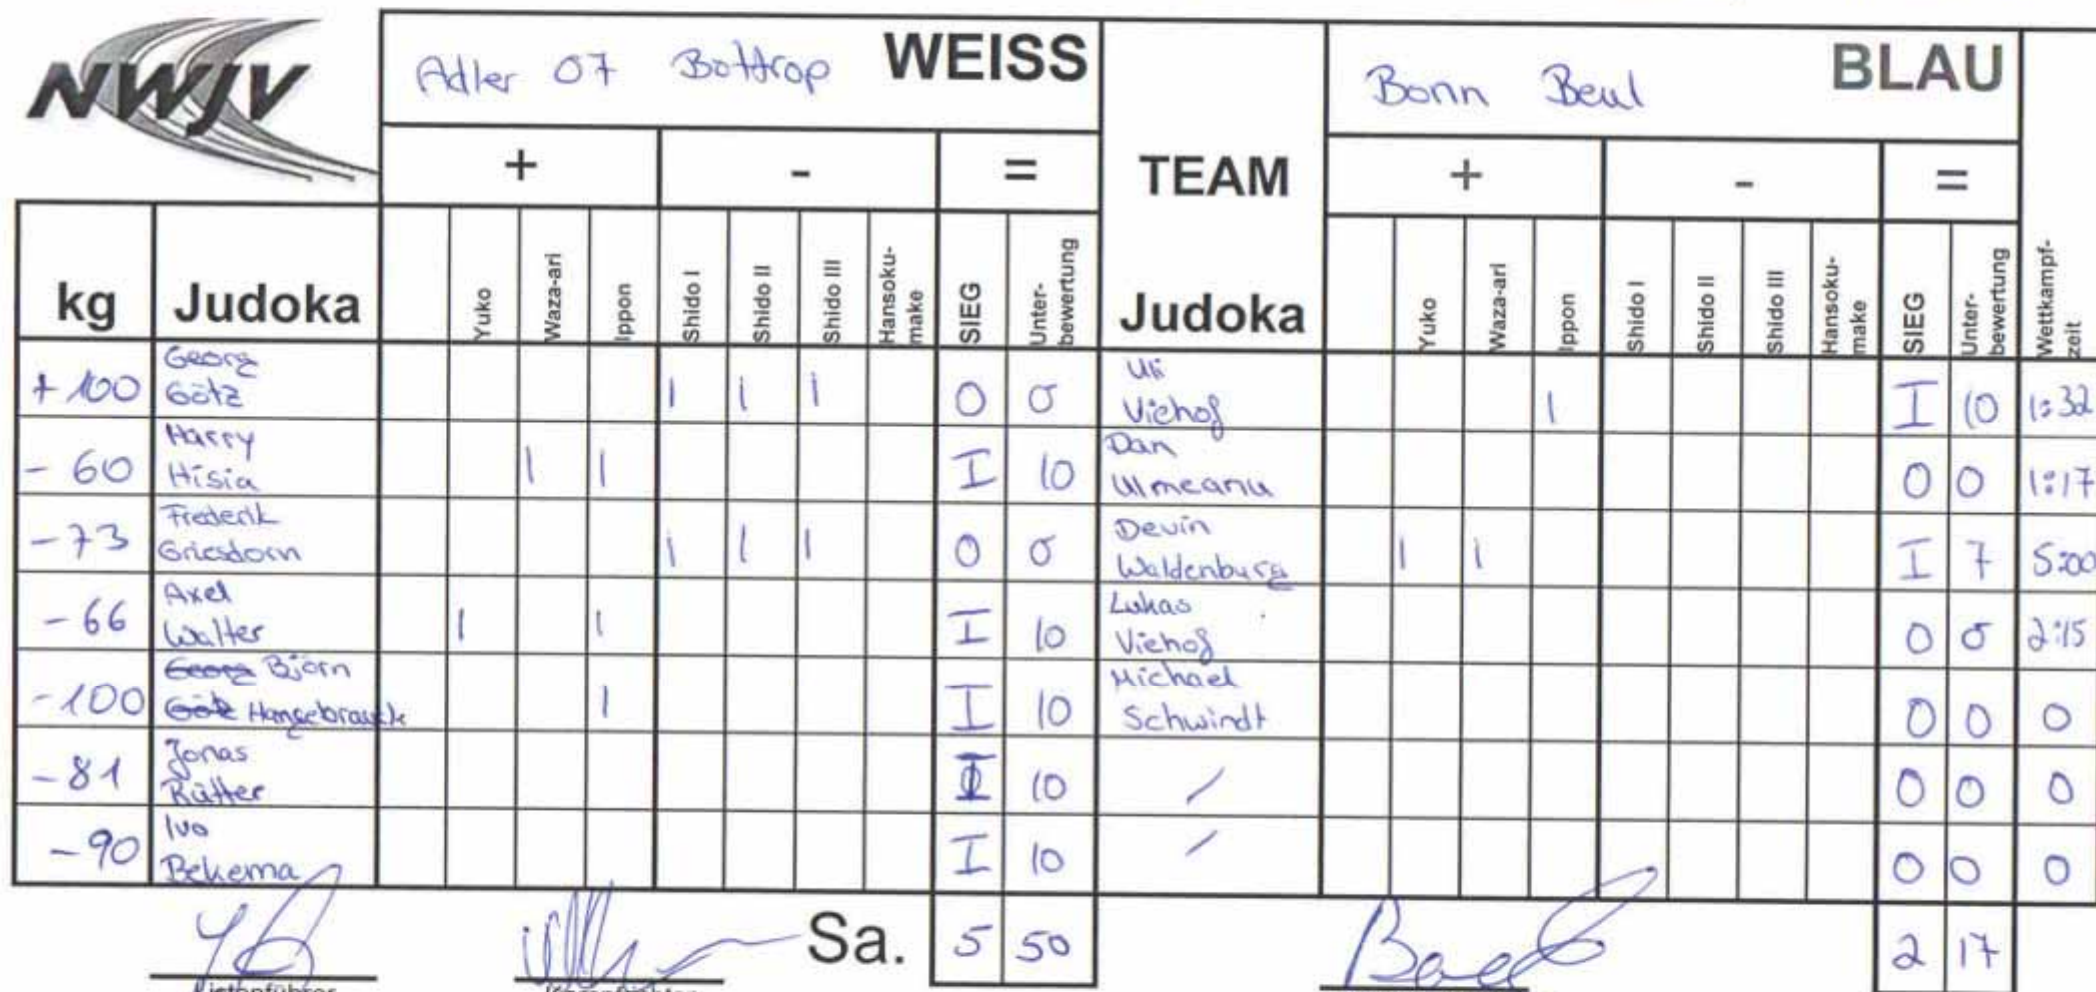 NWJV
Adler 07 Bottrop WEISS
Bonn Beul BLAU
+ - = TEAM + - =
kg Judoka Yuko Waza-ari Ippon Shido I Shido II Shido III Hansoku-make SIEG Unter-bewertung Judoka Yuko Waza-ari Ippon Shido I Shido II Shido III Hansoku-make SIEG Unter-bewertung Wettkampf-zeit
Georg Uli
+100 Götz I I I 0 0 Viehof I I 10 1:32
Harry Dan
-60 Hisia I I I 10 Ulmeanu 0 0 1:17
Frederik Devin
-73 Griesdorn I I I 0 0 Waldenburg I I I 7 5:00
Axel Lukas
-66 Walter I I I 10 Viehof 0 0 2:15
Georg Björn Michael
-100 Götz Hangebrauck I I 10 Schwindt 0 0 0
Jonas
-81 Rütter I 10 / 0 0 0
Ivo
-90 Bekema I 10 / 0 0 0
Sa. 5 50 2 17
Listenführer Kampfrichter